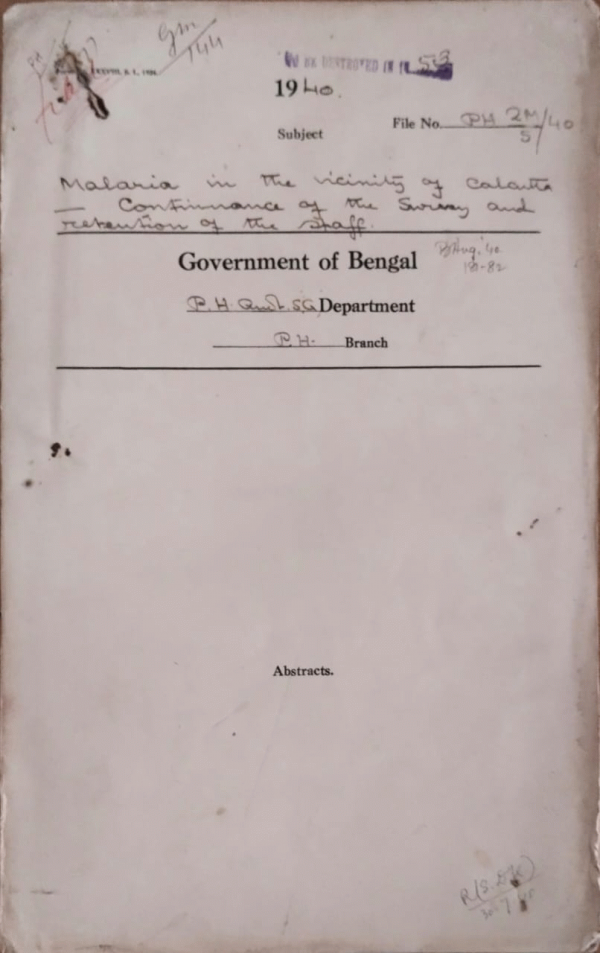 Gm
144
TO BE DESTROYED IN 53
1940.
Subject
File No. PH 2M/40
5
Malaria in the vicinity of Calcutta
— Continuance of the Survey and
retention of the staff.
Government of Bengal
B Aug. '40
P. H. and L.S.G. Department
P.H. Branch
Abstracts.